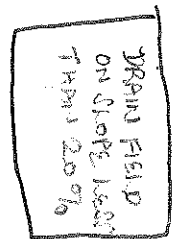 DRAIN FIELD
ON SLOPE LESS
THAN 20%